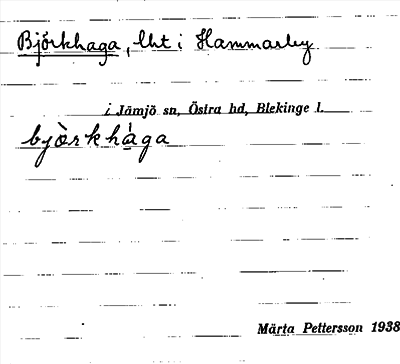 Björkhaga, lht i Hammarby
i Jämjö sn, Östra hd, Blekinge l.
bjὸrkhàga
Märta Pettersson 1938